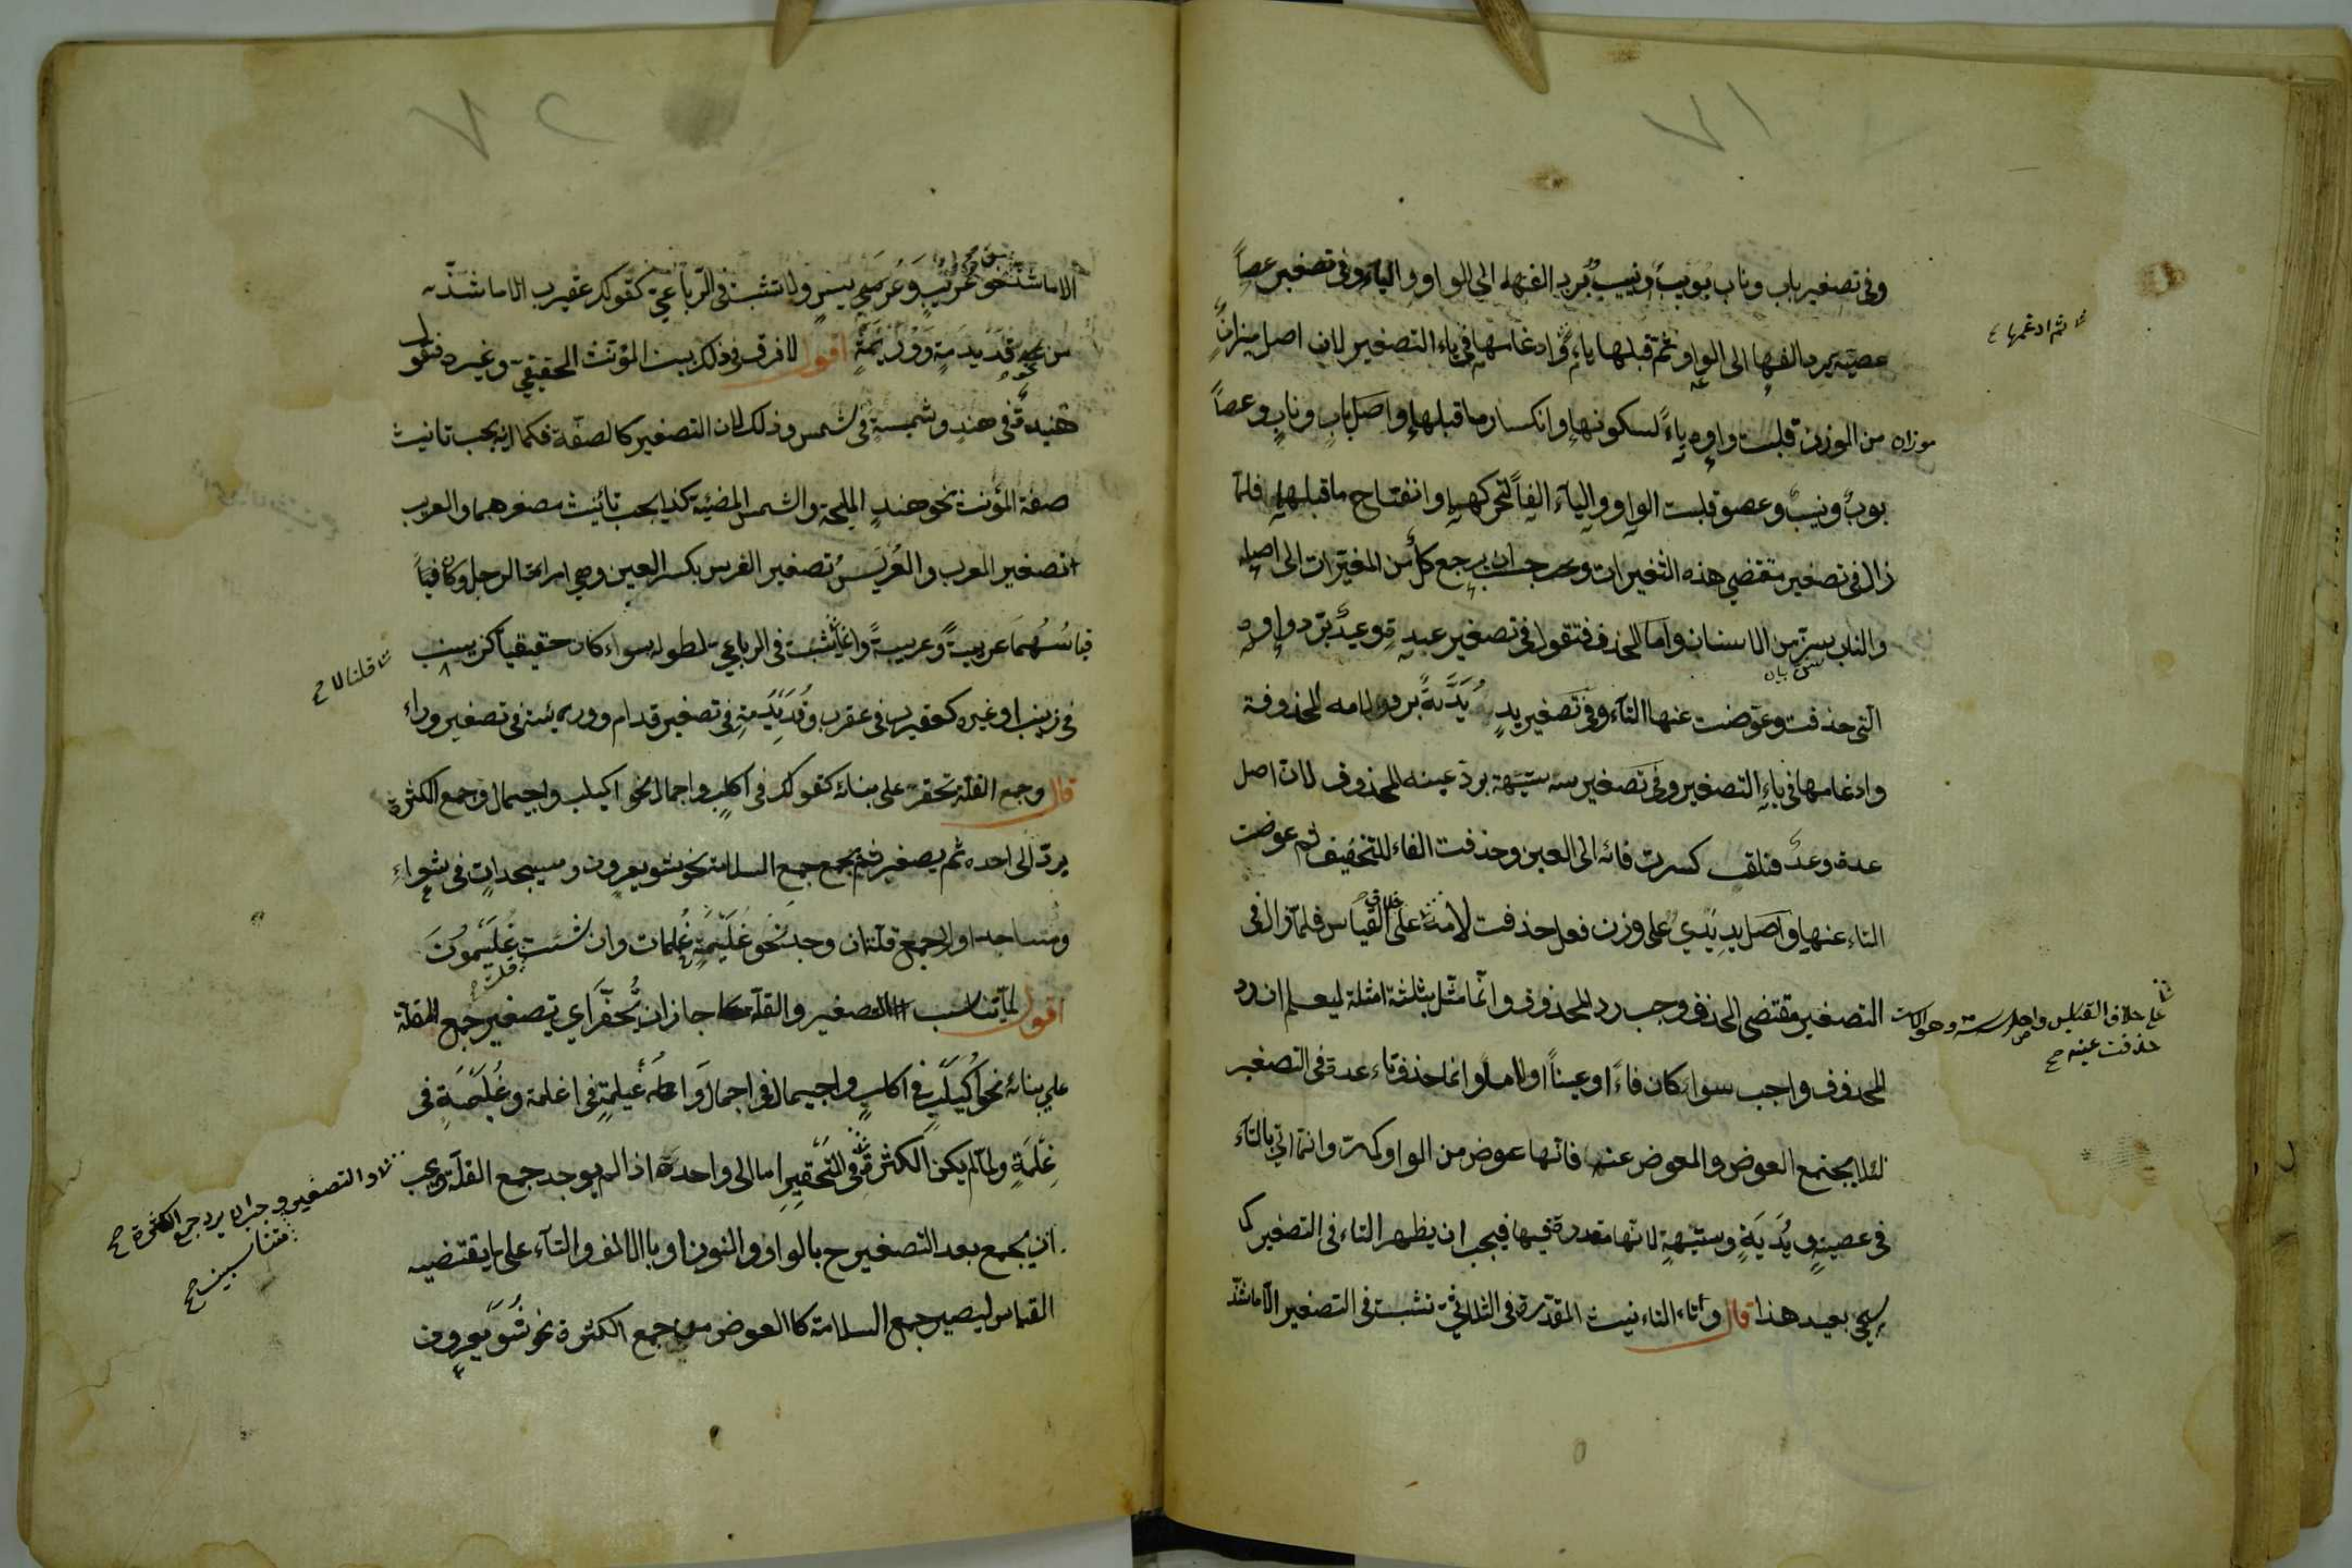 ٧١
وفى تصغير باب وناب بويب ونييب برد الفها الى الواو والياء وفى تصغير عصاً
عصية برد الفها الى الواو ثم قبلها ياء وادغامها فى ياء التصغير لان اصل ميزان
ثم ادغمها
موزان من الوزن قلبت واوه ياءً لسكونها وانكسار ما قبلها واصل باب وناب وعصاً
بوب ونيب وعصو قلبت الواو والياء الفاً لتحركهما وانفتاح ما قبلهما فلما
زال فى تصغير مقتضى هذه التغيرات وجب ان يرجع كل من المغيرات الى اصله
والناب سن من الاسنان واما الحذف فتقول فى تصغير عدة وعيد برد واوه
التى حذفت وعوضت عنها التاء وفى تصغير يد يدية برد لامه المحذوفة
وادغامها فى ياء التصغير وفى تصغير سه ستيهة برد عينه المحذوف لان اصل
عدة وعد فنلقت كسرت فائه الى العين وحذفت الفاء للتخفيف ثم عوضت
التاء عنها واصل يد يدى على وزن فعل حذفت لامه على خلاف القياس فلما زال فى
التصغير مقتضى الحذف وجب رد المحذوف وانما مثل بثلثة امثلة ليعلم ان رد
على خلاف القياس واصل سته وهو الاست
حذفت عينه صح
المحذوف واجب سواء كان فاءً او عيناً او لاماً وانما حذف تاء عدة فى التصغير
لئلا يجتمع العوض والمعوض عنه فانها عوض من الواو كما مرت وانما اتى بالتاء
فى عصية ويُدَيَةٍ وستيهةٍ لانها مقدرة فيها فيجب ان يظهر التاء فى التصغير كما
يجئ بعيد هذا قال وتاء التانيث المقدرة فى الثلاثى تثبت فى التصغير الا ما شذ
٧٢
الا ما شذ من نحو عريب وعريس ولا تثبت فى الرباعى كقولك عقيرب الا ما شذ
من نحو قديديمة ووريئة اقول لا فرق فى ذلك بين المؤنث الحقيقى وغيره فتقول
هنيدة فى هند وشميسة فى شمس وذلك لان التصغير كالصفة فكما انه يجب تانيث
صفة المؤنث نحو هند المليحة والشمس المضيئة كذا يجب تأنيث مصغرهما والعريب
تصغير العرب والعريس تصغير العرس بكسر العين وهى امراة الرجل وكان
قياسهما عريبةً وعريسةً وانما لم تثبت فى الرباعى لطوله سواء كان حقيقياً كزينب
قلنا لا صح
فى زينب او غيره كعقيرب فى عقرب وقديديمة فى تصغير قدام ووريئة فى تصغير وراء
قال وجمع القلة تحقر على بنائه كقولك فى اكلب واجمال نحو اكيلب واجيمال وجمع الكثرة
يرد الى واحده ثم يصغر ثم يجمع جمع السلامة نحو شويعرون ومسيجدات فى شعراء
ومساجد او الى جمع قلة ان وجد نحو غليمة فى غلمان وان شئت غليمون
اقول لما تناسب التصغير والقلة جاز ان يحقر اى تصغير جمع القلة
على بنائه نحو اكيلب فى اكلب واجيمال فى اجمال واغيلمة فى اغلمة وغليمة فى
غلمة ولما لم يكن الكثرة والتحقير اما الى واحده اذا لم يوجد جمع القلة ويجب
والتصغير وجب ان يرد جمع الكثرة صح
متناسبين صح
ان يجمع بعد التصغير ح بالواو والنون او بالالف والتاء على ما يقتضيه
القياس ليصير جمع السلامة كالعوض من جمع الكثرة نحو شويعرون